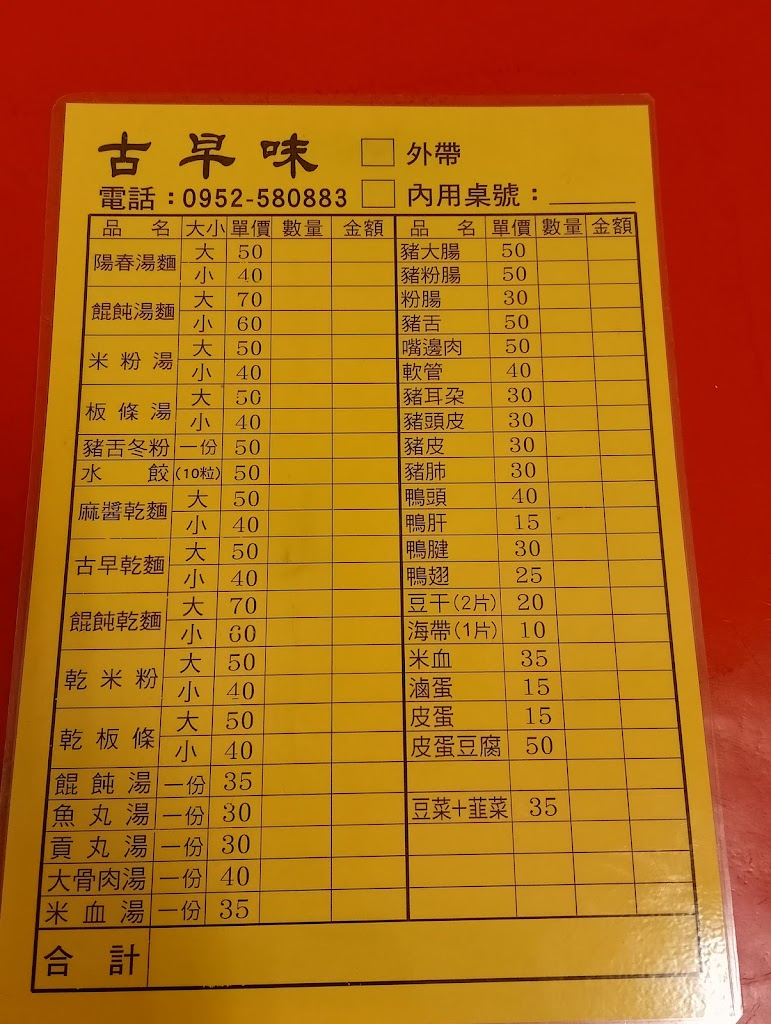 古早味 □ 外帶
電話：0952-580883 □ 內用桌號：
品名 大小 單價 數量 金額 品名 單價 數量 金額
陽春湯麵 大 50 豬大腸 50
小 40 豬粉腸 50
餛飩湯麵 大 70 粉腸 30
小 60 豬舌 50
米粉湯 大 50 嘴邊肉 50
小 40 軟管 40
板條湯 大 50 豬耳朶 30
小 40 豬頭皮 30
豬舌冬粉 一份 50 豬皮 30
水餃 (10粒) 50 豬肺 30
麻醬乾麵 大 50 鴨頭 40
小 40 鴨肝 15
古早乾麵 大 50 鴨腱 30
小 40 鴨翅 25
餛飩乾麵 大 70 豆干(2片) 20
小 60 海帶(1片) 10
乾米粉 大 50 米血 35
小 40 滷蛋 15
乾板條 大 50 皮蛋 15
小 40 皮蛋豆腐 50
餛飩湯 一份 35
魚丸湯 一份 30 豆菜+韮菜 35
貢丸湯 一份 30
大骨肉湯 一份 40
米血湯 一份 35
合計